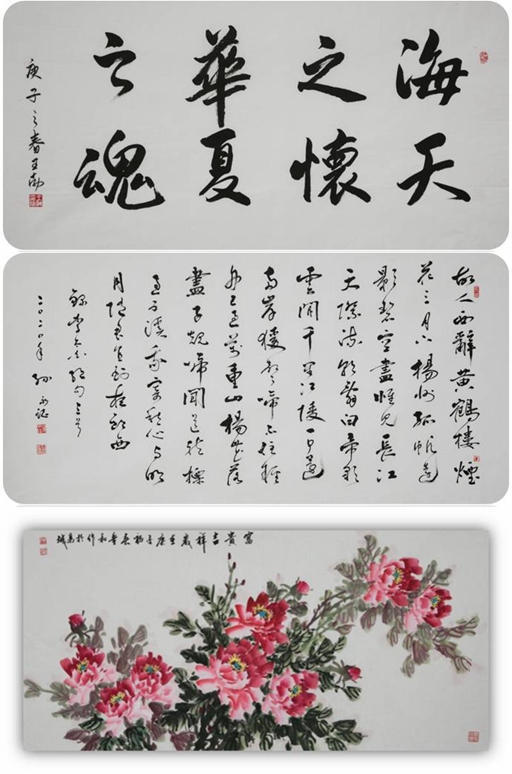 海天
之懷
華夏
之魂
庚子之春王
故人西辭黄鶴楼煙
花三月下揚州孤帆遠
影碧空盡惟見長江
天際流朝辭白帝彩
雲間千里江陵一日還
兩岸猿聲啼不住輕
舟已過萬重山楊花落
盡子規啼聞道龍標
過五溪我寄愁心與明
月隨君直到夜郎西
錄李白絶句三首
二〇二〇年
富貴吉祥歲在庚子春和作於禹城